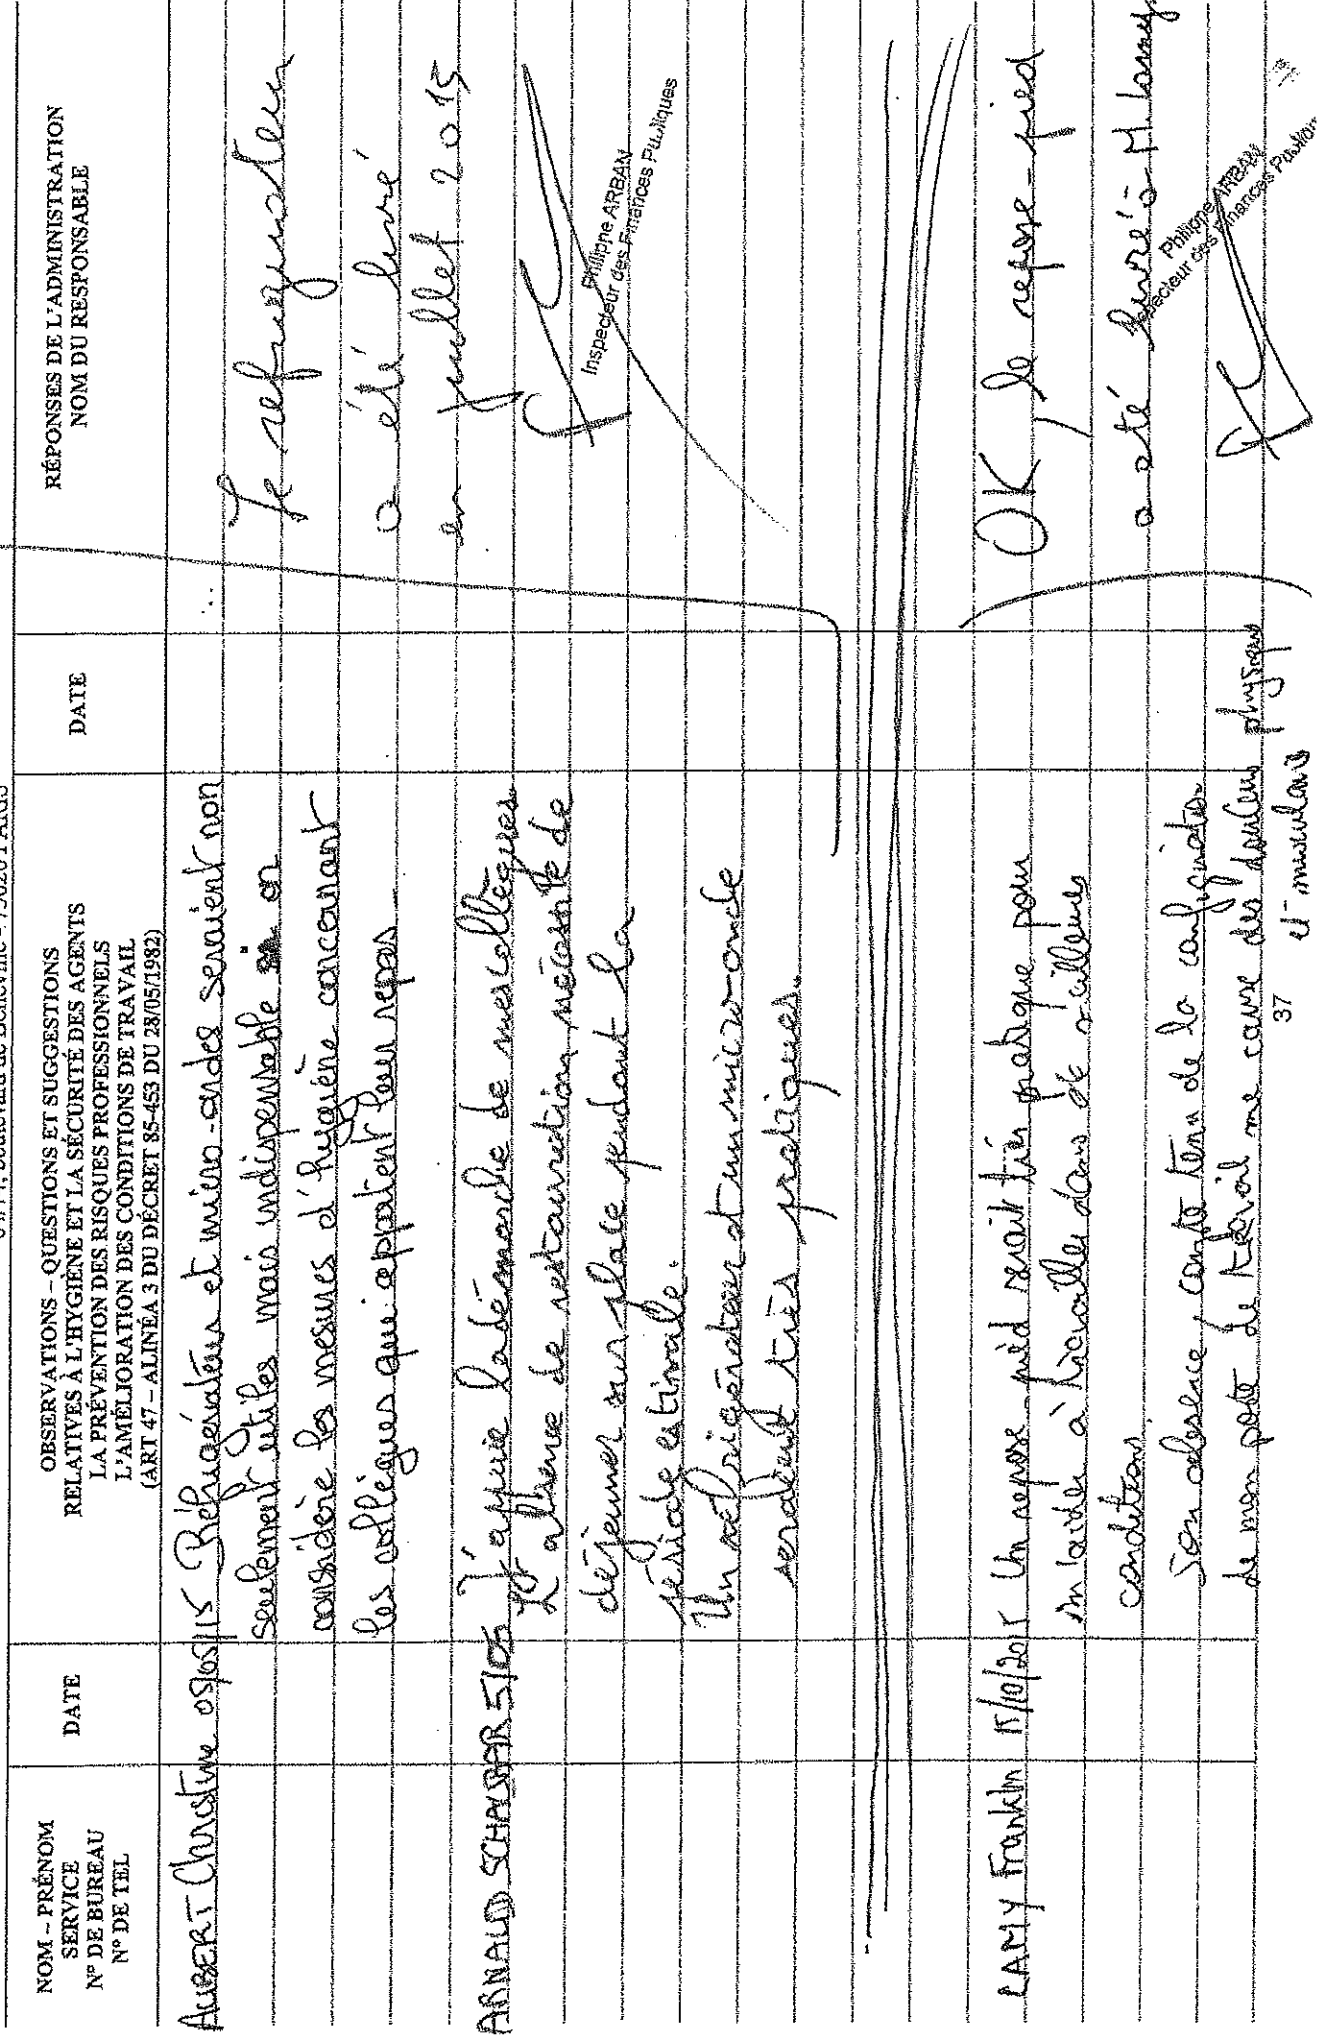 NOM – PRÉNOM
SERVICE
N° DE BUREAU
N° DE TEL
DATE
OBSERVATIONS – QUESTIONS ET SUGGESTIONS
RELATIVES À L'HYGIÈNE ET LA SÉCURITÉ DES AGENTS
LA PRÉVENTION DES RISQUES PROFESSIONNELS
L'AMÉLIORATION DES CONDITIONS DE TRAVAIL
(ART 47 – ALINÉA 3 DU DÉCRET 85-453 DU 28/05/1982)
DATE
RÉPONSES DE L'ADMINISTRATION
NOM DU RESPONSABLE
AUBERT Christine 05/05/15 Réfrigérateurs et micro-ondes seraient non
seulement utiles mais indispensable si on
considère les mesures d'hygiène concernant
les collègues qui apportent leur repas
Le réfrigérateur
a été livré
en juillet 2015
Philippe ARBAN
Inspecteur des Finances Publiques
ARNAUD 5/05 J'appuie la démarche de mes collègues
L'absence de restauration nécessite de
déjeuner sur place pendant la
période estivale.
Un réfrigérateur et un micro-onde
seraient très pratiques.
LAMY Franklin 15/10/2015 Un repose-pied serait très pratique pour
m'aider à travailler dans de meilleures
conditions.
Son absence, compte tenu de la configuration
de mon poste de travail me cause des douleurs physiques
et musculaires
OK, le repose-pied
a été livré à M. Lamy
Philippe ARBAN
Inspecteur des Finances Publiques
37